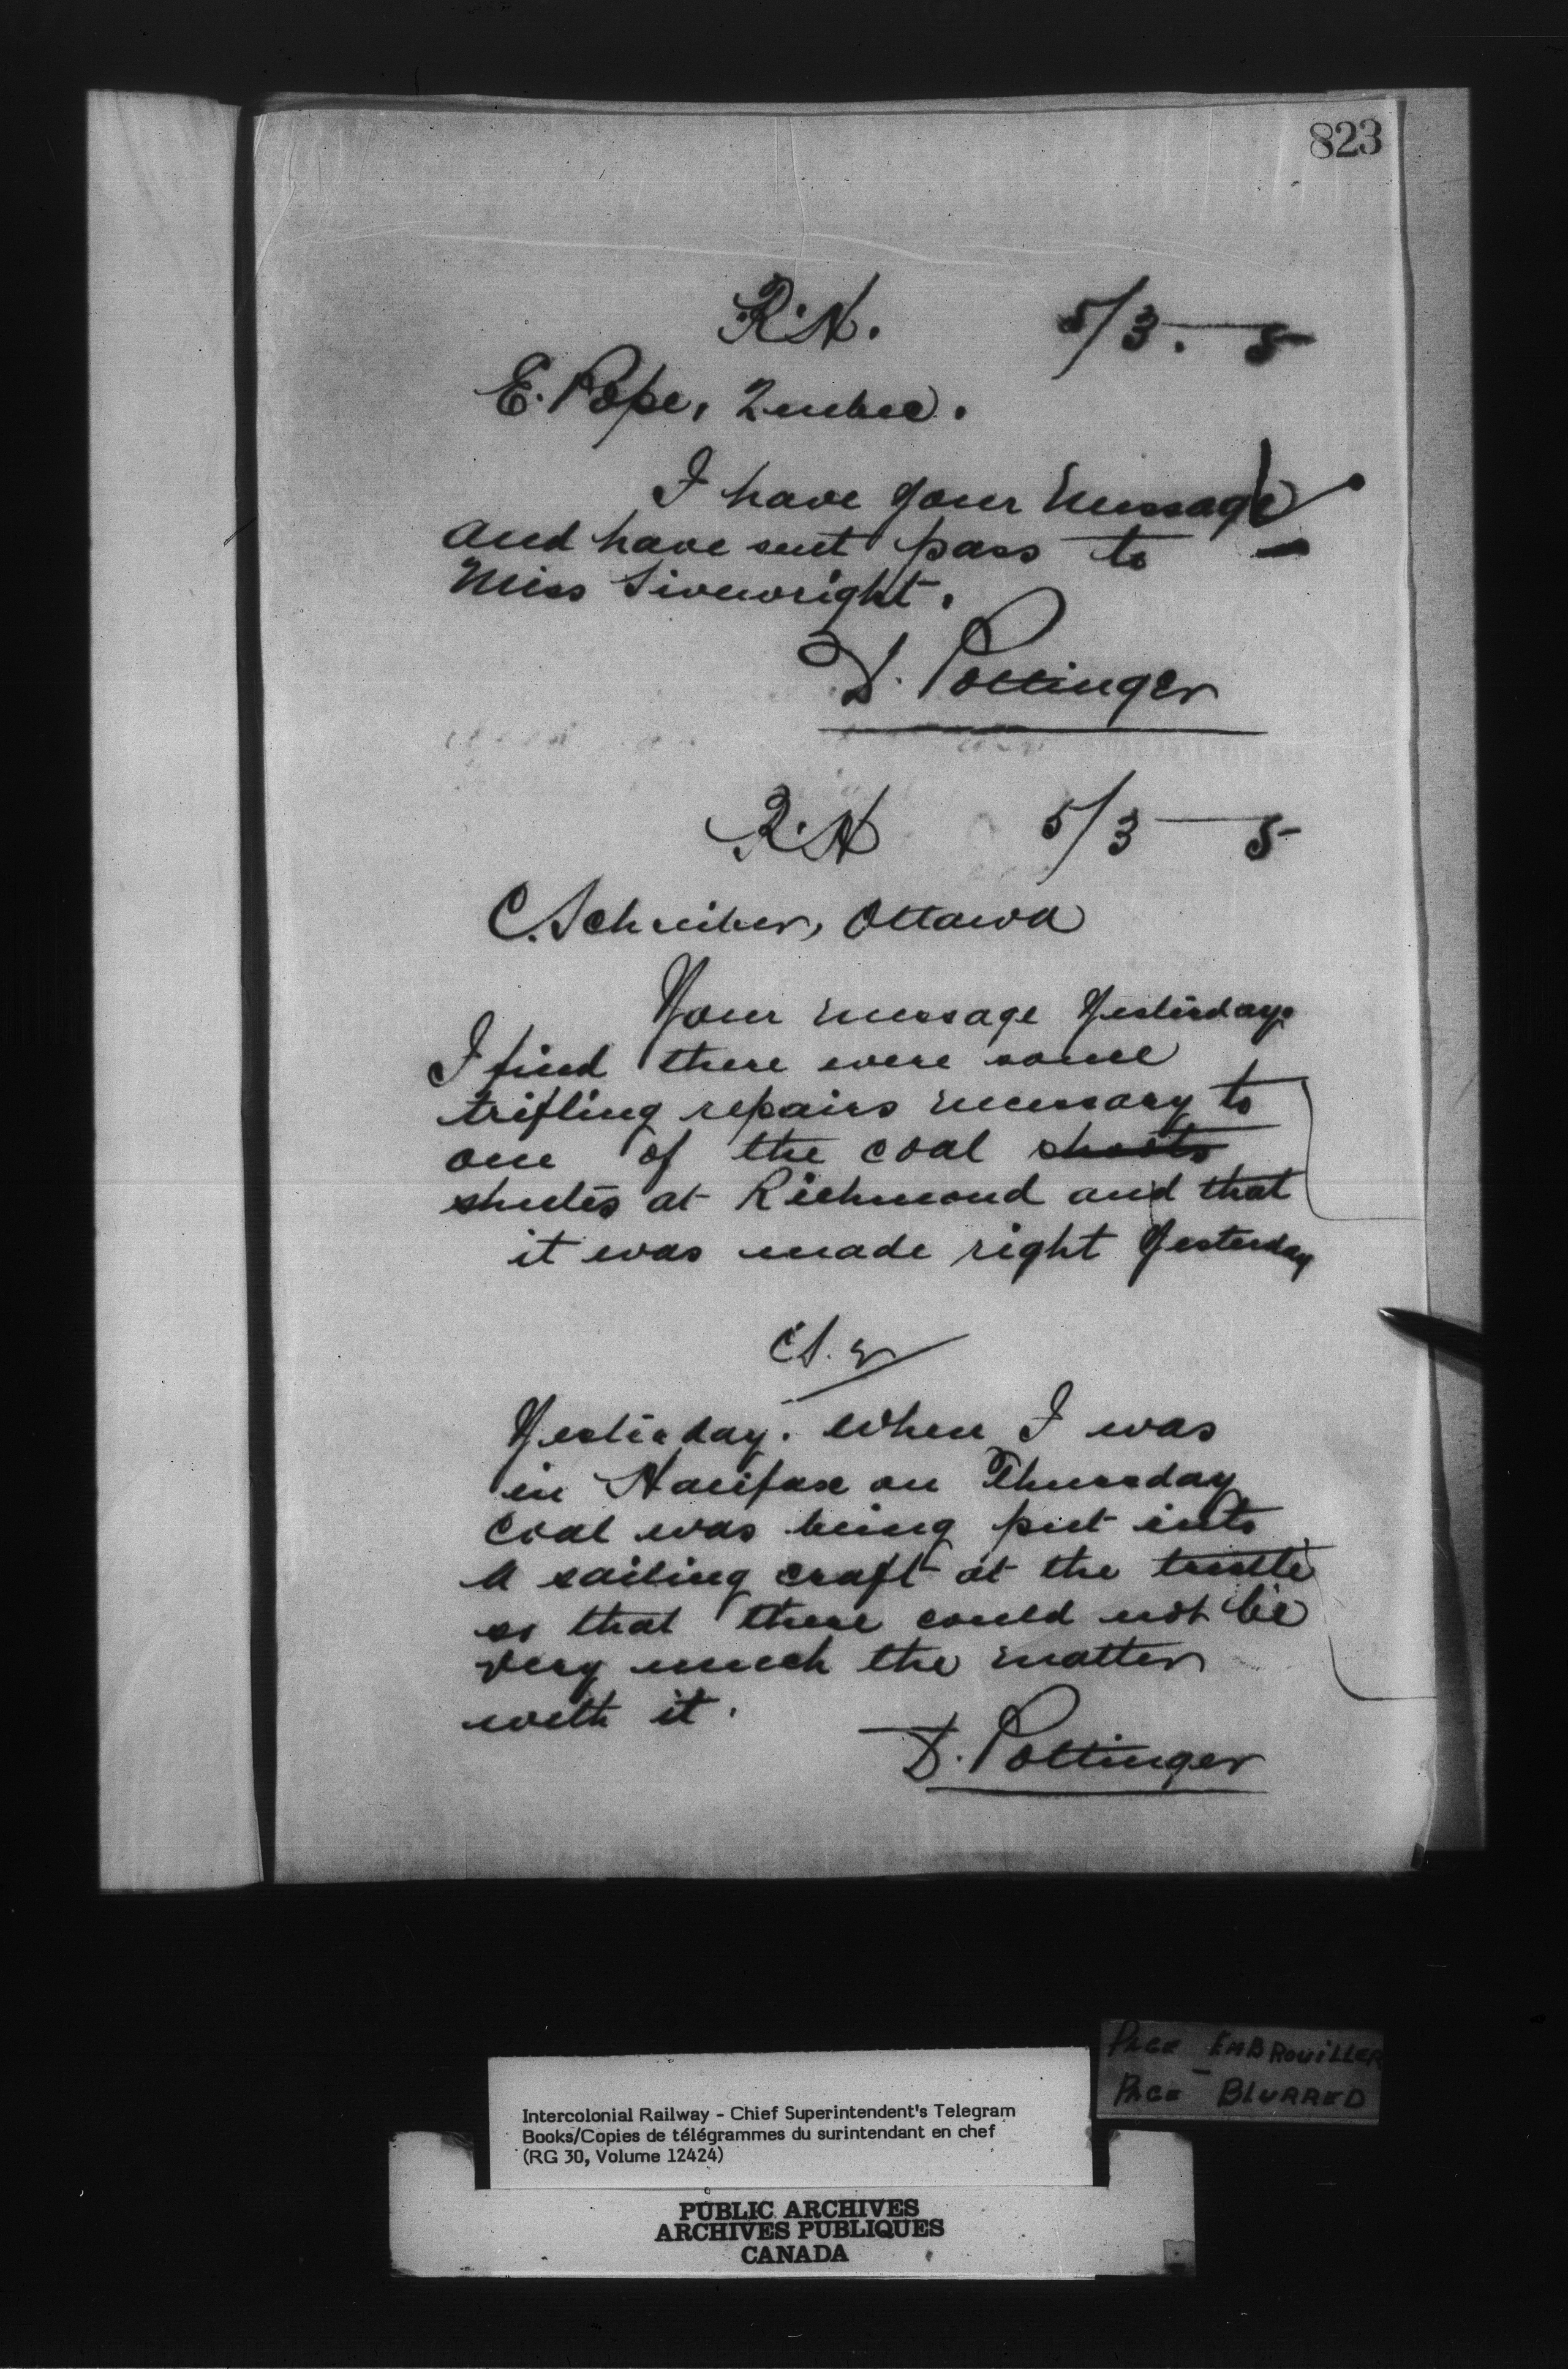 823
R.N. 5/3. — 5
E. Pope, Quebec.
I have your message
and have sent pass to
Miss Sivewright.
D. Pottinger
R.N 5/3 — 5
C. Schreiber, Ottawa
Your message yesterday.
I find there were some
trifling repairs necessary to
one of the coal shoots
shutes at Richmond and that
it was made right yesterday
C.S. 2
Yesterday. When I was
in Halifax on Thursday
coal was being put into
a sailing craft at the trestle
so that there could not be
very much the matter
with it.
D. Pottinger
PAGE EMBROUILLER
PAGE BLURRED
Intercolonial Railway - Chief Superintendent's Telegram
Books/Copies de télégrammes du surintendant en chef
(RG 30, Volume 12424)
PUBLIC ARCHIVES
ARCHIVES PUBLIQUES
CANADA